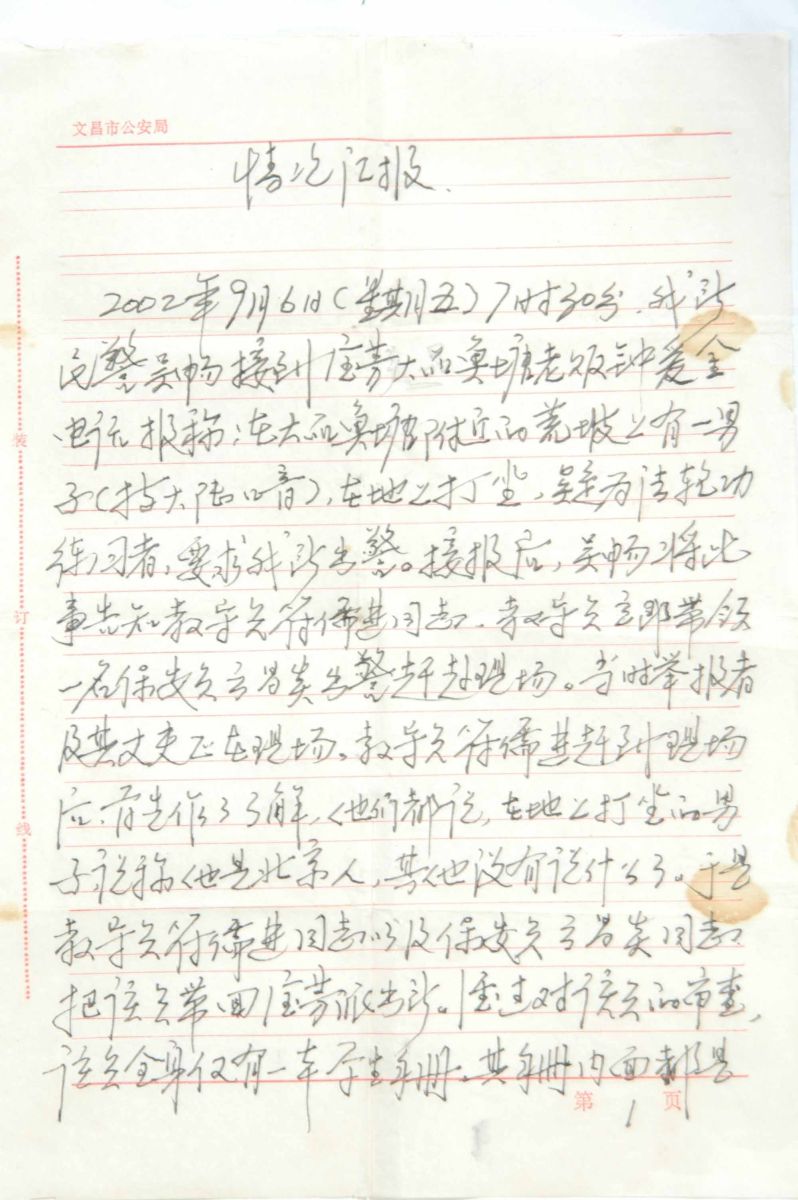 文昌市公安局
情况汇报.
2002年9月6日(星期五)7时30分,我所
民警吴畅接到 大品鱼塘老板钟爱金
电话报称:在大品鱼塘附近的荒坡上有一男
子(持大陆口音),在地上打坐,疑为法轮功
练习者,要求我所出警。接报后,吴畅将此
事告知教导员符儒进同志,教导员立即带领
一名保安员 昌炎出警赶赴现场。当时举报者
及其丈夫正在现场。教导员符儒进赶到现场
后,首先作了了解,他们都说,在地上打坐的男
子说称他是北京人,其他没有说什么了。于是
教导员符儒进同志以及保安员 昌炎同志
把该员带回 派出所。经过对该员的审查,
该员全身仅有一本学生手册。其手册内面都是
装
订
线
第 1 页